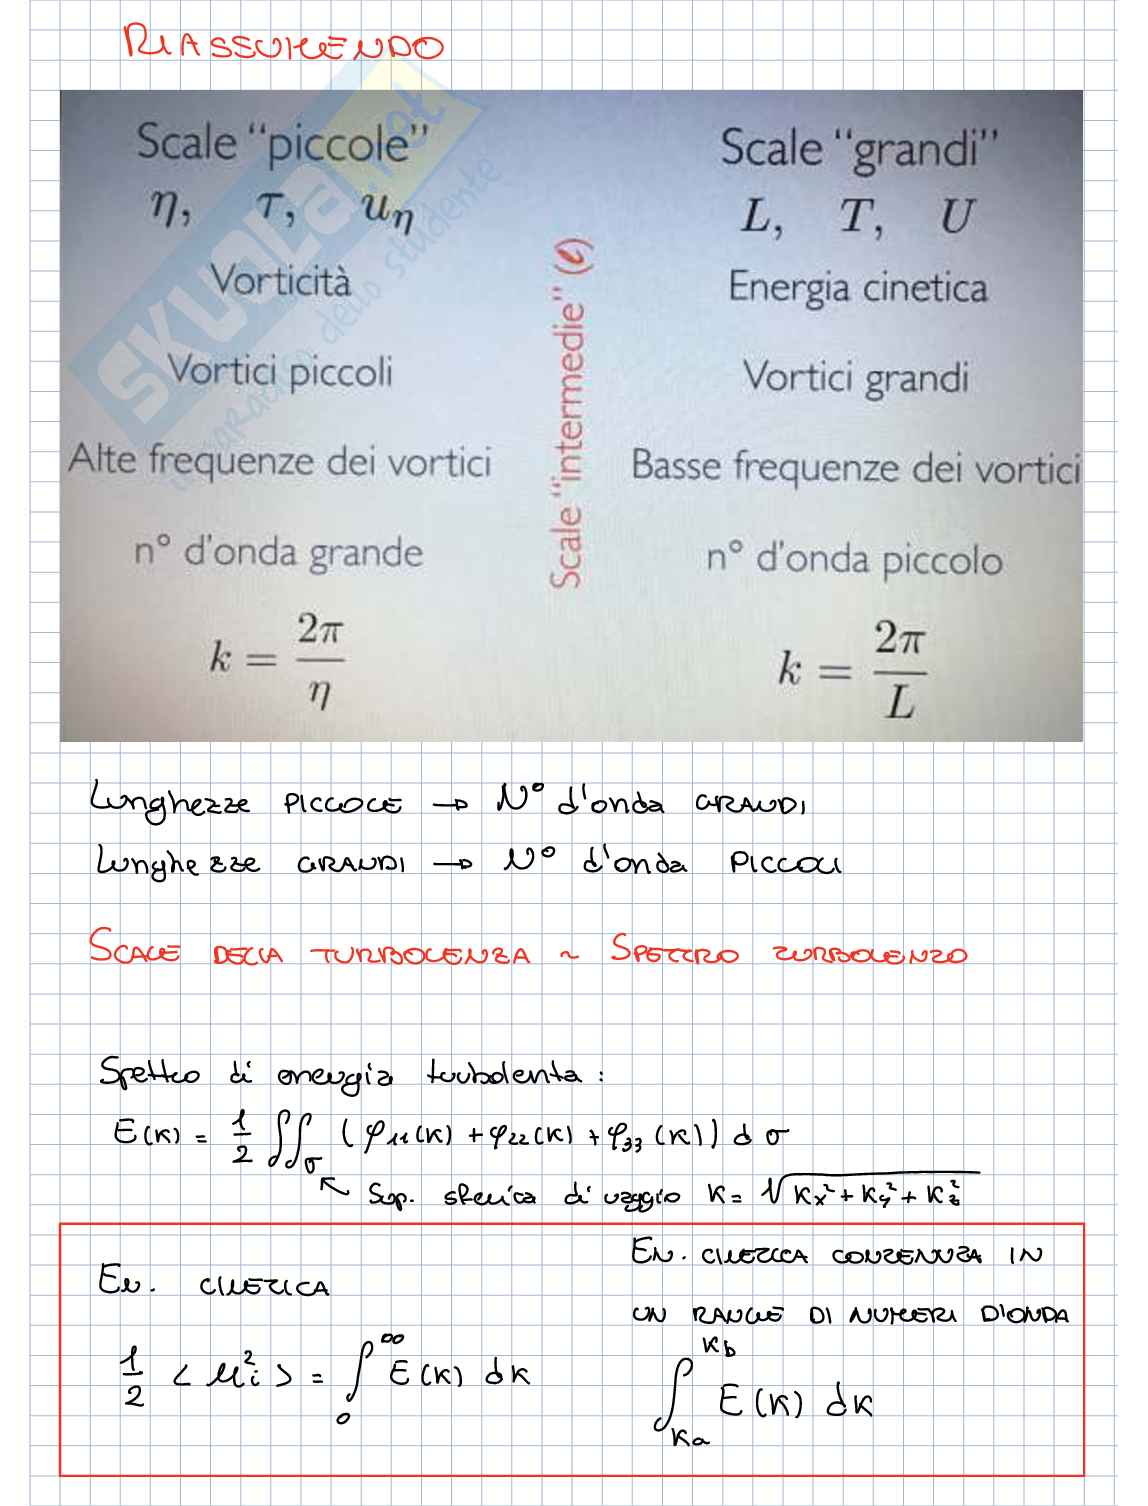 RIASSUMENDO
Scale "piccole"
η, τ, uη
Vorticità
Vortici piccoli
Alte frequenze dei vortici
n° d'onda grande
k = 2π/η
Scale "intermedie" (ℓ)
Scale "grandi"
L, T, U
Energia cinetica
Vortici grandi
Basse frequenze dei vortici
n° d'onda piccolo
k = 2π/L
SKUOLA.net
il paradiso dello studente
Lunghezze PICCOLE → N° d'onda GRANDI
Lunghezze GRANDI → N° d'onda PICCOLI
SCALE DELLA TURBOLENZA ~ SPETTRO TURBOLENTO
Spettro di energia turbolenta :
E(K) = 1/2 ∬σ (φ11(K) + φ22(K) + φ33(K)) dσ
↖ Sup. sferica di raggio K = √(Kx² + Ky² + Kz²)
EN. CINETICA
1/2 <ui²> = ∫₀^∞ E(K) dK
EN. CINETICA CONTENUTA IN
UN RANGE DI NUMERI D'ONDA
∫Ka^Kb E(K) dK